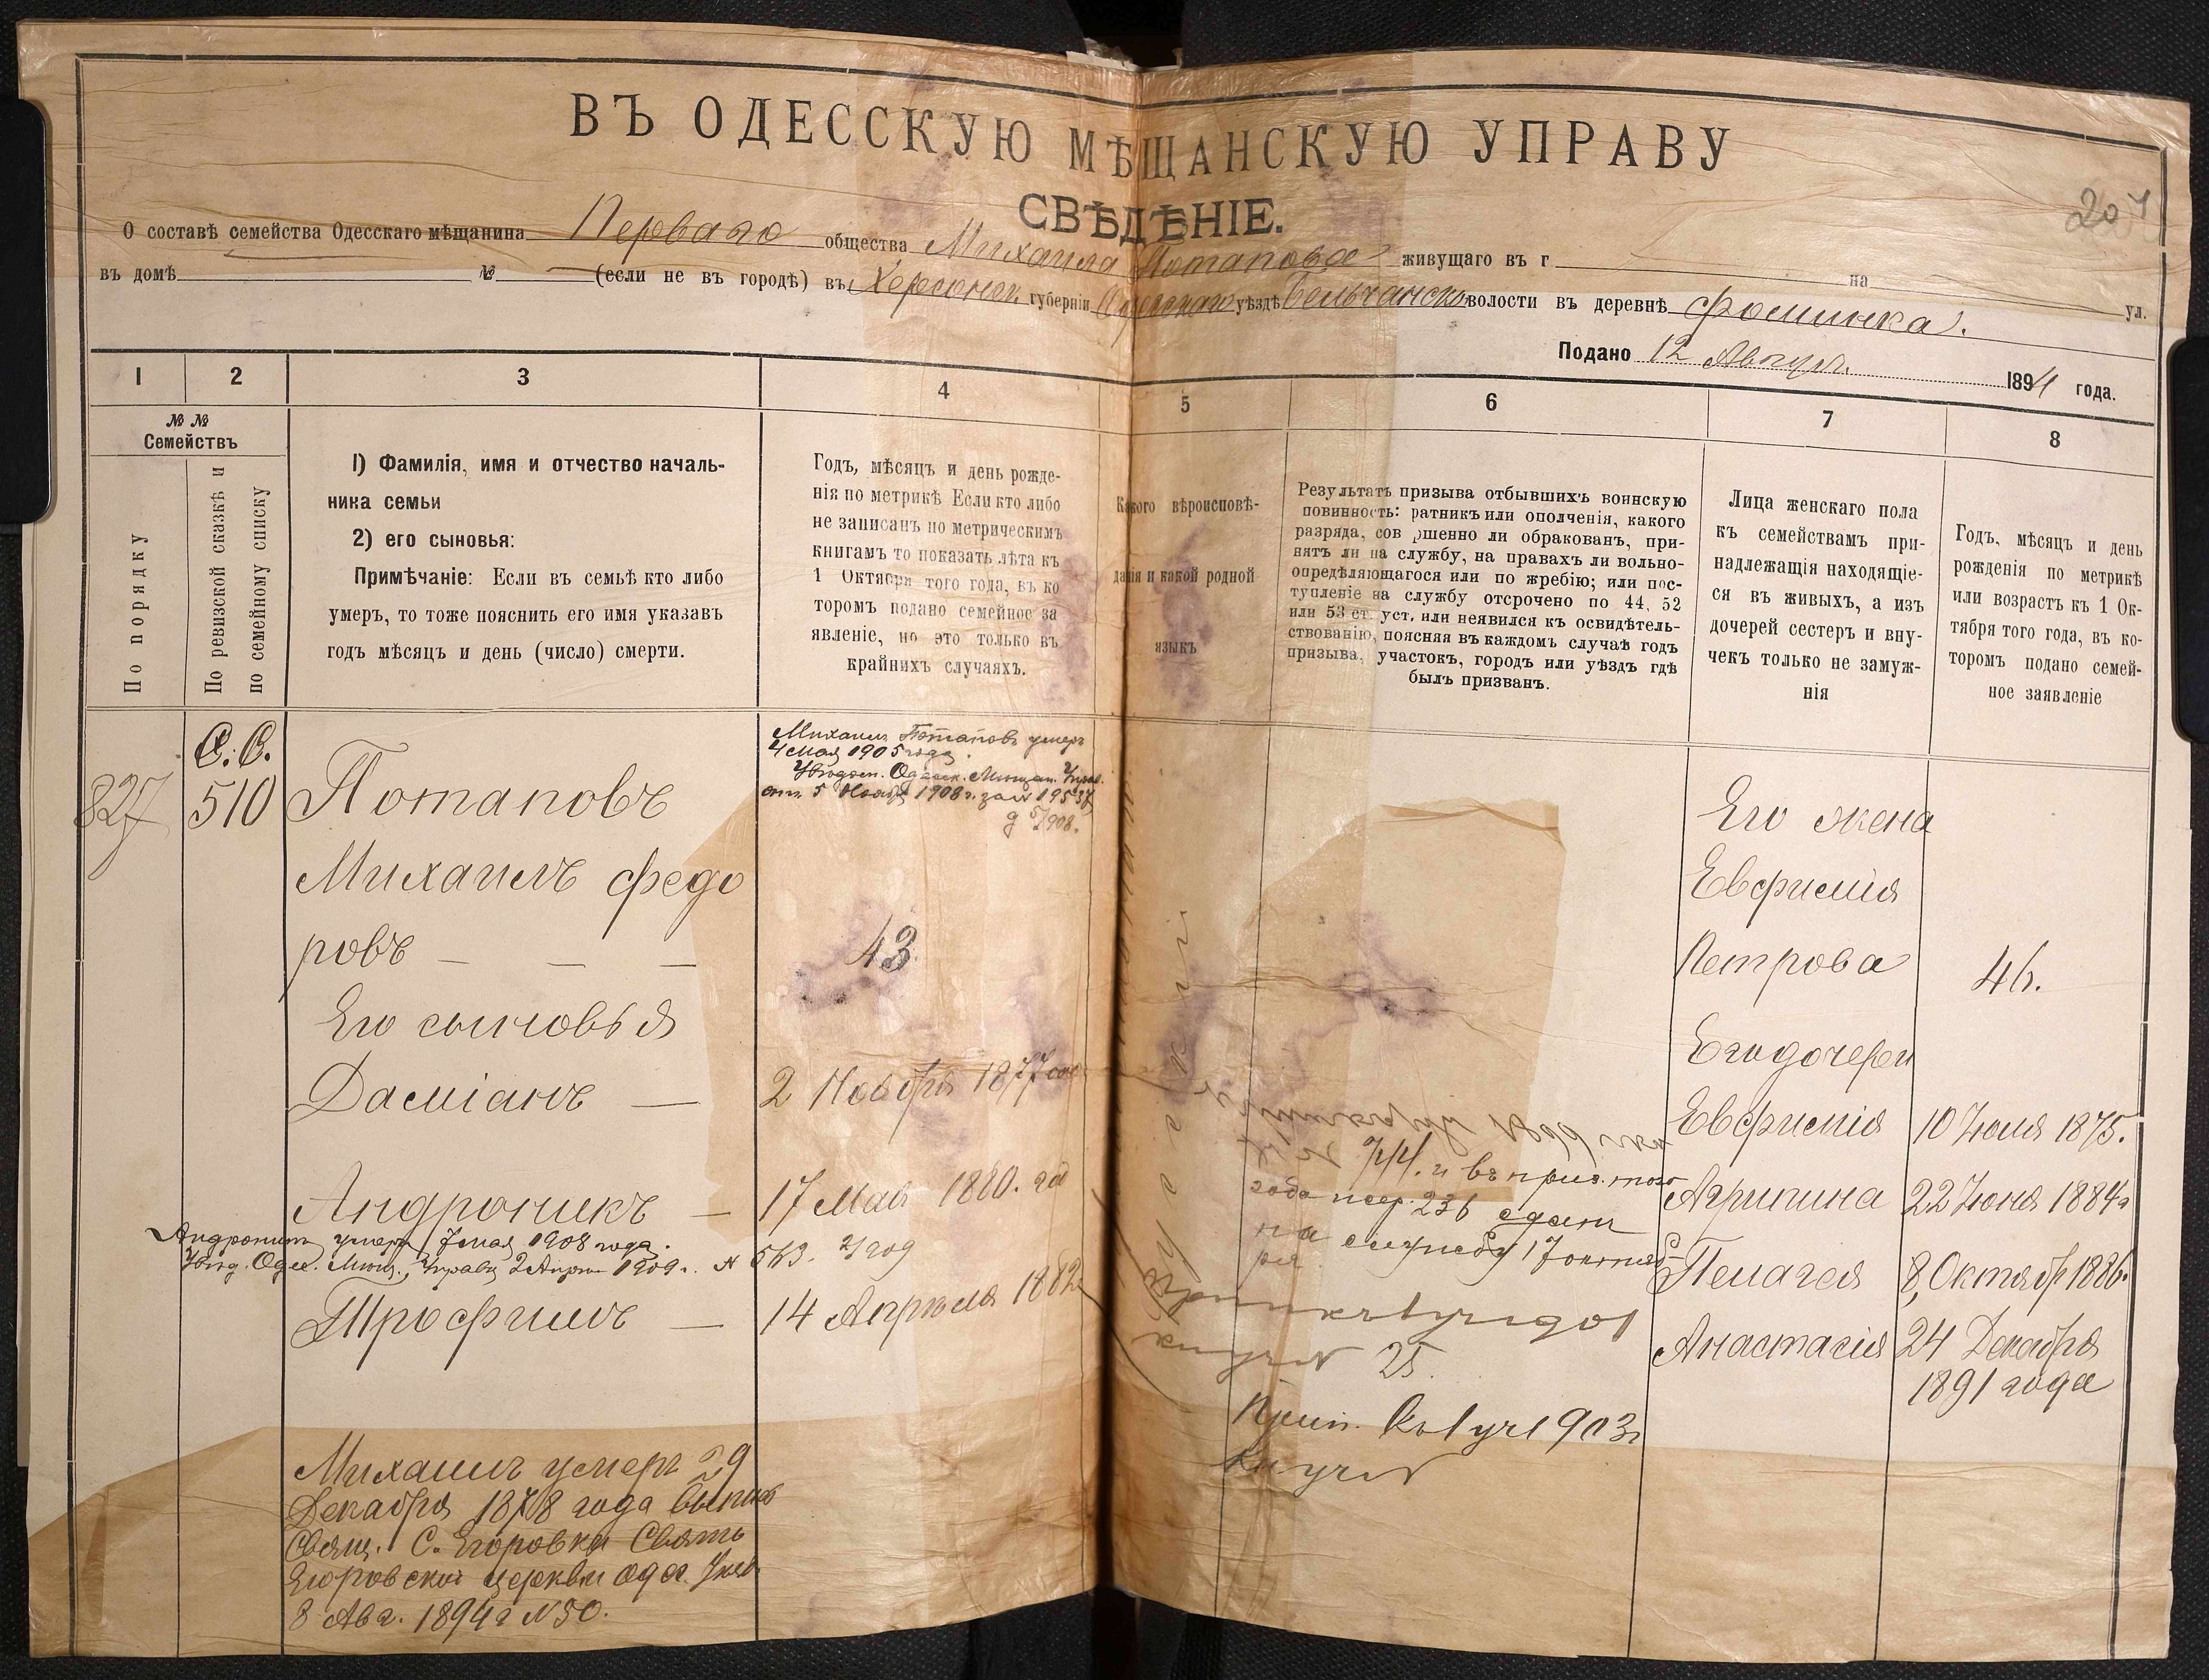 207
ВЪ ОДЕССКУЮ МѢЩАНСКУЮ УПРАВУ
СВѢДѢНІЕ.
О составѣ семейства Одесскаго мѣщанина Перваго общества Михаила Потапова живущаго въ г на ул.
въ домѣ № (если не въ городѣ) въ Херсонск. губерніи Одесскаго уѣздѣ Бельчанск. волости въ деревнѣ Фоминка.
Подано 12 Август. 1894 года.
1 2 3 4 5 6 7 8
№№
Семействъ
По порядку
По ревизской сказкѣ и
по семейному списку
1) Фамилія, имя и отчество началь-
ника семьи
2) его сыновья:
Примѣчаніе: Если въ семьѣ кто либо
умеръ, то тоже пояснить его имя указавъ
годъ мѣсяцъ и день (число) смерти.
Годъ, мѣсяцъ и день рожде-
нія по метрикѣ Если кто либо
не записанъ по метрическимъ
книгамъ то показать лѣта къ
1 Октября того года, въ ко
торомъ подано семейное за
явленіе, но это только въ
крайнихъ случаяхъ.
Какого вѣроисповѣ-
данія и какой родной
языкъ
Результатъ призыва отбывшихъ воинскую
повинность: ратникъ или ополченія, какого
разряда, совершенно ли обракованъ, при-
нятъ ли на службу, на правахъ ли вольно-
опредѣляющагося или по жребію; или пос-
тупленіе на службу отсрочено по 44, 52
или 53 ст. уст. или неявился къ освидѣтель-
ствованію, поясняя въ каждомъ случаѣ годъ
призыва, участокъ, городъ или уѣздъ гдѣ
былъ призванъ.
Лица женскаго пола
къ семействамъ при-
надлежащія находящіе-
ся въ живыхъ, а изъ
дочерей сестеръ и вну-
чекъ только не замуж-
нія
Годъ, мѣсяцъ и день
рожденія по метрикѣ
или возрастъ къ 1 Ок-
тября того года, въ ко-
торомъ подано семей-
ное заявленіе
827
С. С.
510
Потаповъ
Михаилъ Федо
ровъ — — —
Его сыновья
Даміанъ —
Андроникъ —
Андроникъ умеръ 7 мая 1908 года.
Увѣд. Одес. Мѣщ. Управы 2 Апрѣл 1909 г. N 563. 2/909
Трофимъ —
Михаилъ умеръ 29
Декабря 1878 года выпись
Свящ. С. Егоровки Свято
Егоровской церкви Одес. Уѣзд.
8 Авг. 1894 г N 50.
Михаилъ Потаповъ умеръ
4 мая 1905 года.
Увѣдом. Одесск. Мѣщан. Управ.
отъ 5 Ноября 1908 г. за N 19537
43
2 Ноября 1877 года
17 Мая 1880. год
14 Апрѣля 1882
Русскій
1899
744. и въ приз. того
года жер. 236 сданъ
на службу 17 октяб
ря
25.
Прип. къ 1 уч 1903 г
Его жена
Евфимія
Петрова
46.
Его дочери
Евфимія 10 Іюля 1875.
Агрипина 22 Іюня 1884 г
Пелагея 8 Октябр 1886.
Анастасія 24 Декабря
1891 года